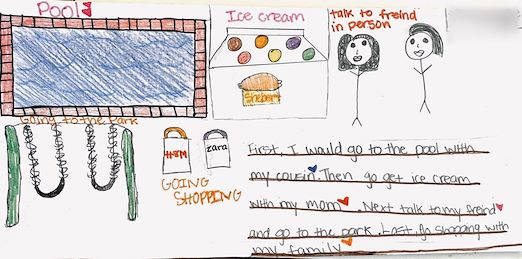 Pool
Ice cream
talk to freind
in person
Going to the Park
H&M
zara
GOING
SHOPPING
First, I would go to the pool with
my cousin. Then go get ice cream
with my mom. Next talk to my freind
and go to the park. Last. Go shopping with
my family